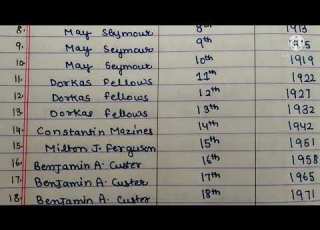 8. May Seymour 8th 1913
9. May Seymour 9th
10. May Seymour 10th 1919
11. Dorkas Fellows 11th 1922
12. Dorkas Fellows 12th 1927
13. Dorkas Fellows 13th 1932
14. Constantin Mazines 14th 1942
15. Milton J. Ferguson 15th 1951
16. Benjamin A. Custer 16th 1958
17. Benjamin A. Custer 17th 1965
18. Benjamin A. Custer 18th 1971